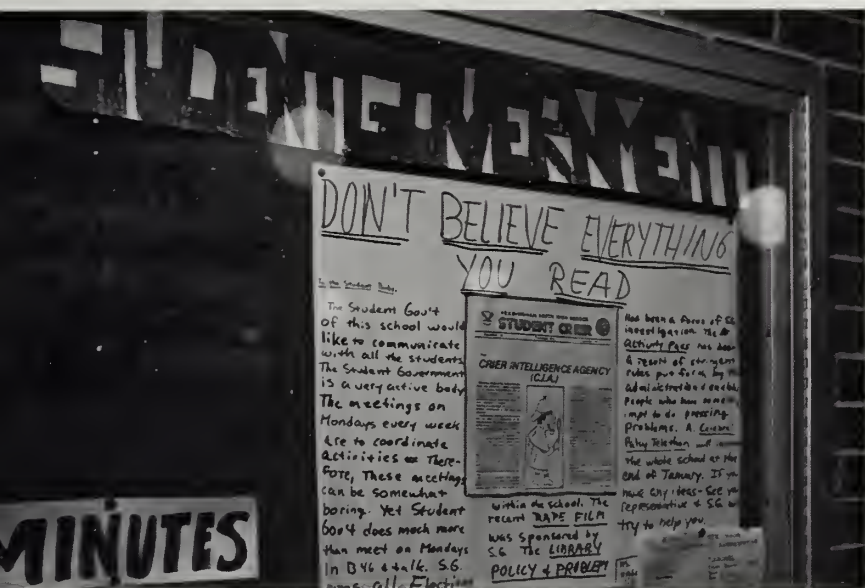 STUDENT GOVERNMENT
DON'T BELIEVE EVERYTHING
YOU READ
To the Student Body,
The Student Gov't
of this school would
like to communicate
with all the students
The Student Government
is a very active body
The meetings on
Mondays every week
are to coordinate
activities There-
fore, These meetings
can be somewhat
boring. Yet Student
Gov't does much more
than meet on Mondays
In B46 & talk. S.G.
runs all Electi
STUDENT CRIER
CRIER INTELLIGENCE AGENCY
(C.I.A.)
within the school. The
recent RAPE FILM
was sponsored by
S.G. The LIBRARY
POLICY & PROBLEM
Has been a focus of S.G.
investigation. The
Activity Pass has been
A result of stringent
rules put forth by the
administration
People who have
to do pressing
Problems. A Cerebral
Palsy Telethon will
the whole school at the
end of January. If you
have any ideas-See your
representative & S.G. w
try to help you.
MINUTES